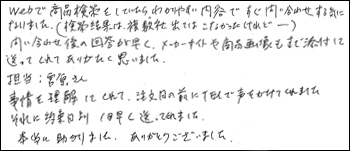 Webで商品検索をしていたらわかりやすい内容ですぐ問い合わせする気に
なりました。(検索結果は複数社出てはこなかったけれど…)
問い合わせ後の回答が早く、メーカーサイトや商品画像もすぐ添付して
送ってくれてありがたく思いました。
担当:宮原さん
事情を理解してくれて、注文日の前にTELで声をかけてくれました
それに約束日より1日早く送ってくれました。
本当に助かりました。ありがとうございました。